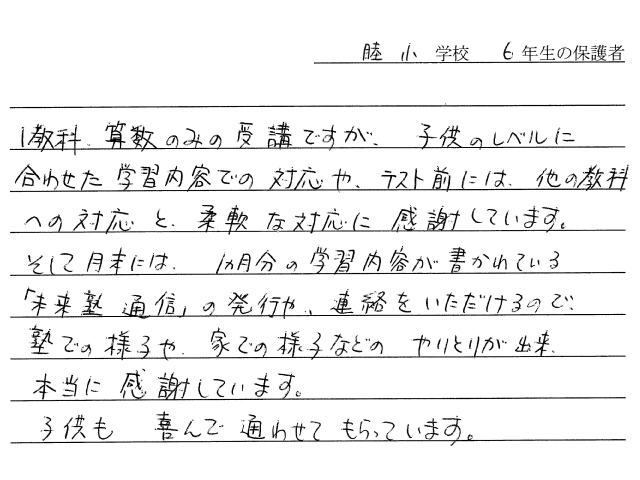 睦小 学校 6年生の保護者
1教科、算数のみの受講ですが、子供のレベルに
合わせた学習内容での対応や、テスト前には、他の教科
への対応と、柔軟な対応に感謝しています。
そして月末には、1ヵ月分の学習内容が書かれている
「未来塾通信」の発行や、連絡をいただけるので、
塾での様子や、家での様子などのやりとりが出来、
本当に感謝しています。
子供も喜んで通わせてもらっています。